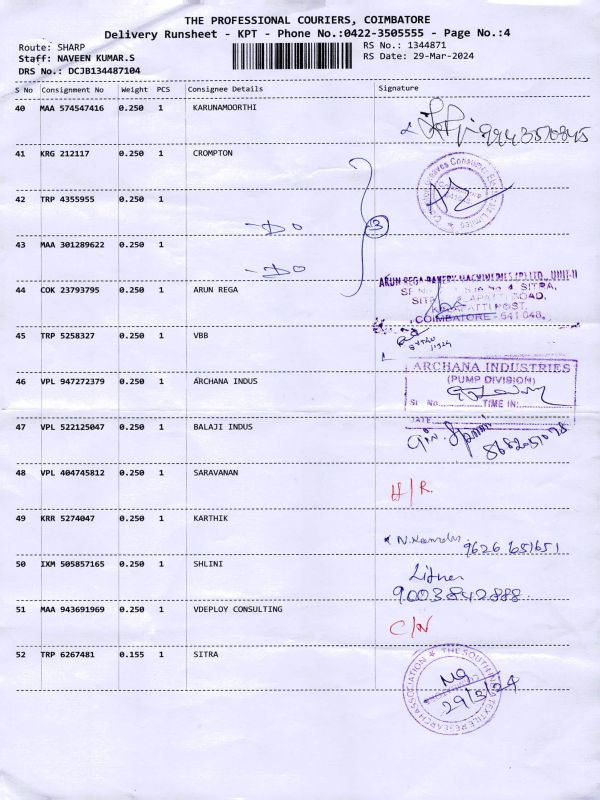 THE PROFESSIONAL COURIERS, COIMBATORE
Delivery Runsheet - KPT - Phone No.:0422-3505555 - Page No.:4
Route: SHARP
Staff: NAVEEN KUMAR.S
DRS No.: DCJB134487104
RS No.: 1344871
RS Date: 29-Mar-2024
S No Consignment No Weight PCS Consignee Details Signature
40 MAA 574547416 0.250 1 KARUNAMOORTHI
9943570845
41 KRG 212117 0.250 1 CROMPTON
42 TRP 4355955 0.250 1 -Do
3
43 MAA 301289622 0.250 1 -Do
44 COK 23793795 0.250 1 ARUN REGA
ARUN REGA BAKERY MACHINERIES (P) LTD., UNIT-II
SITRA,
POST,
COIMBATORE - 641 048.
45 TRP 5258327 0.250 1 VBB
46 VPL 947272379 0.250 1 ARCHANA INDUS
ARCHANA INDUSTRIES
(PUMP DIVISION)
Sl. No. TIME IN:
DATE
47 VPL 522125047 0.250 1 BALAJI INDUS
48 VPL 404745812 0.250 1 SARAVANAN H/R.
49 KRR 5274047 0.250 1 KARTHIK
9626 651651
50 IXM 505857165 0.250 1 SHLINI
9003842888
51 MAA 943691969 0.250 1 VDEPLOY CONSULTING C/N
52 TRP 6267481 0.155 1 SITRA
THE SOUTH INDIA TEXTILE RESEARCH ASSOCIATION
29/3/24